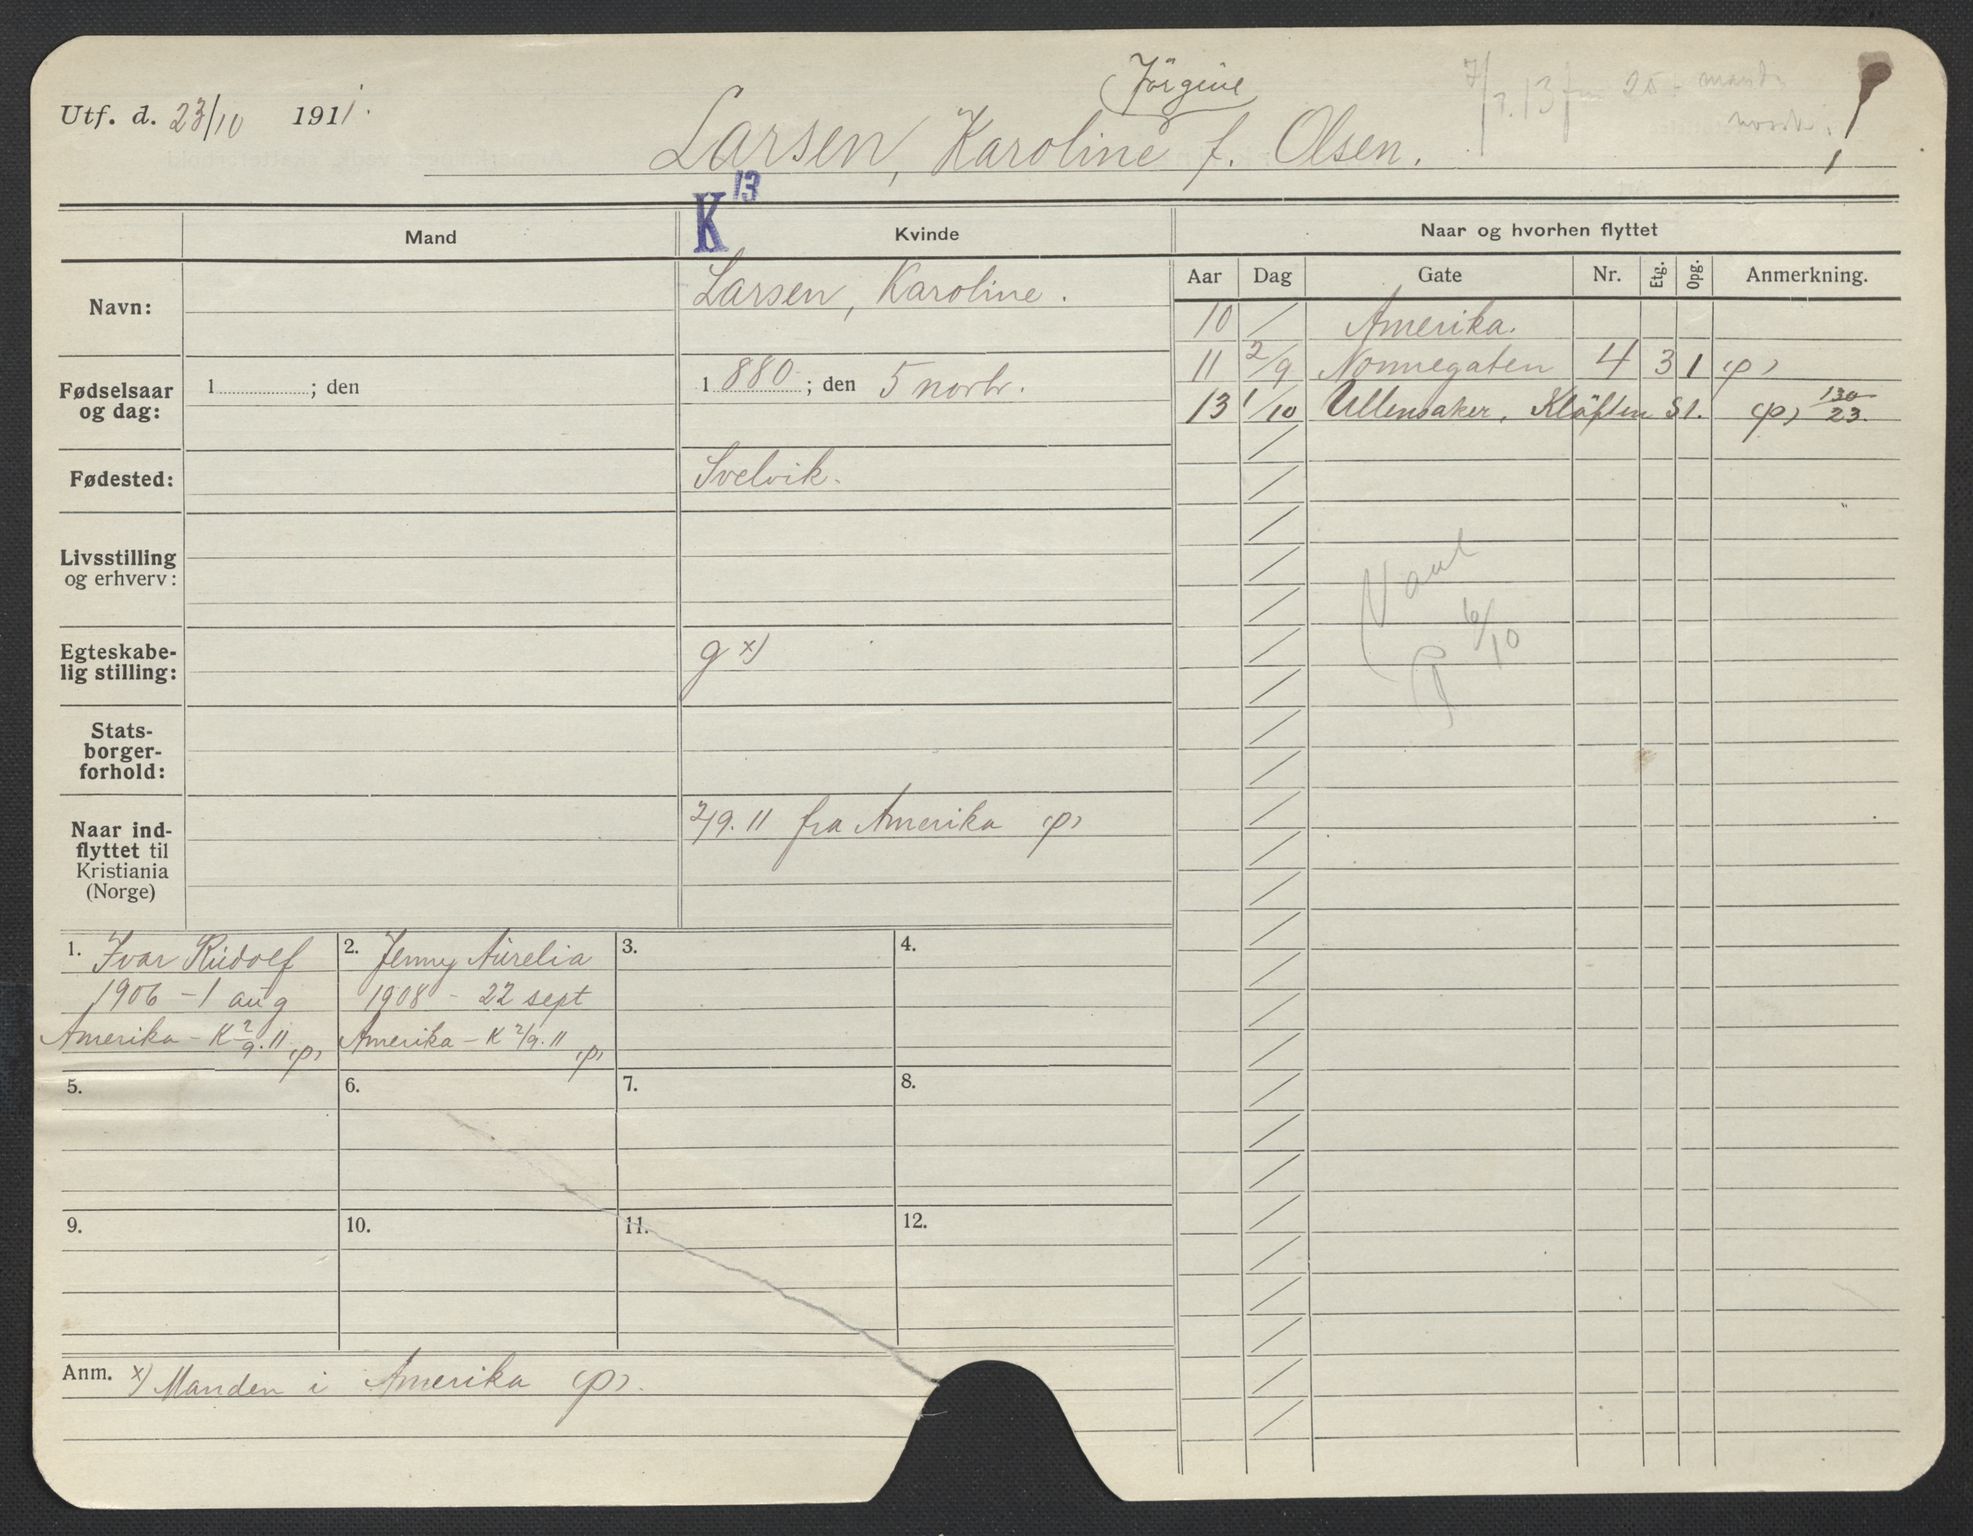 Utf. d. 23/10 1911.
Jörgine
Larsen, Karoline f. Olsen.
K 13
Mand
Kvinde
Naar og hvorhen flyttet
Aar Dag Gate Nr. Etg. Opg. Anmerkning.
Navn:
Larsen, Karoline.
10 Amerika.
11 2/9 Nonnegaten 4 3 1 (p)
13 1/10 Ullensaker, Kläften St. (p) 130/23.
Fødselsaar og dag:
1 ; den
1880 ; den 5 novbr.
Fødested:
Svelvik.
Livsstilling og erhverv:
Egteskabe-
lig stilling:
g x)
Stats-
borger-
forhold:
Naar ind-
flyttet til
Kristiania
(Norge)
2/9. 11 fra Amerika (p)
6/10
1. Ivar Rudolf
1906 - 1 aug
Amerika - K 2/9. 11 (p)
2. Jenny Aurelia
1908 - 22 sept
Amerika - K 2/9. 11 (p)
3.
4.
5.
6.
7.
8.
9.
10.
11.
12.
Anm. x) Manden i Amerika (p).